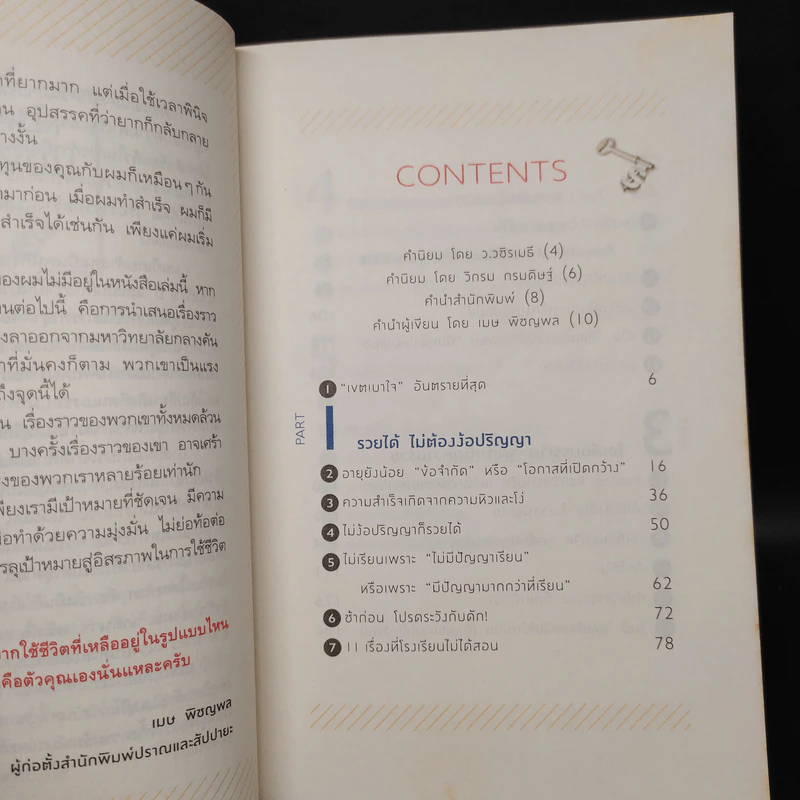 าที่ยากมาก แต่เมื่อใช้เวลาพินิจ
าน อุปสรรคที่ว่ายากก็กลับกลาย
างงั้น
ทุนของคุณกับผมก็เหมือนๆกัน
ามาก่อน เมื่อผมทำสำเร็จ ผมก็มี
สำเร็จได้เช่นกัน เพียงแค่ผมเริ่ม
องผมไม่มีอยู่ในหนังสือเล่มนี้ หาก
านต่อไปนี้ คือการนำเสนอเรื่องราว
งลาออกจากมหาวิทยาลัยกลางคัน
าที่มั่นคงก็ตาม พวกเขาเป็นแรง
ถึงจุดนี้ได้
น เรื่องราวของพวกเขาทั้งหมดล้วน
บางครั้งเรื่องราวของเขา อาจเศร้า
งของพวกเราหลายร้อยเท่านัก
พียงเรามีเป้าหมายที่ชัดเจน มีความ
อทำด้วยความมุ่งมั่น ไม่ย่อท้อต่อ
รลุเป้าหมายสู่อิสรภาพในการใช้ชีวิต
ากใช้ชีวิตที่เหลืออยู่ในรูปแบบไหน
คือตัวคุณเองนั่นแหละครับ
เมษ พิชญพล
ผู้ก่อตั้งสำนักพิมพ์ปราณและสัปปายะ
CONTENTS
คำนิยม โดย ว.วชิรเมธี (4)
คำนิยม โดย วิกรม กรมดิษฐ์ (6)
คำนำสำนักพิมพ์ (8)
คำนำผู้เขียน โดย เมษ พิชญพล (10)
1 "เขตเบาใจ" อันตรายที่สุด 6
PART 1 รวยได้ ไม่ต้องง้อปริญญา
2 อายุยังน้อย "ข้อจำกัด" หรือ "โอกาสที่เปิดกว้าง" 16
3 ความสำเร็จเกิดจากความหิวและโง่ 36
4 ไม่ง้อปริญญาก็รวยได้ 50
5 ไม่เรียนเพราะ "ไม่มีปัญญาเรียน"
หรือเพราะ "มีปัญญามากกว่าที่เรียน" 62
6 ช้าก่อน โปรดระวังกับดัก! 72
7 11 เรื่องที่โรงเรียนไม่ได้สอน 78